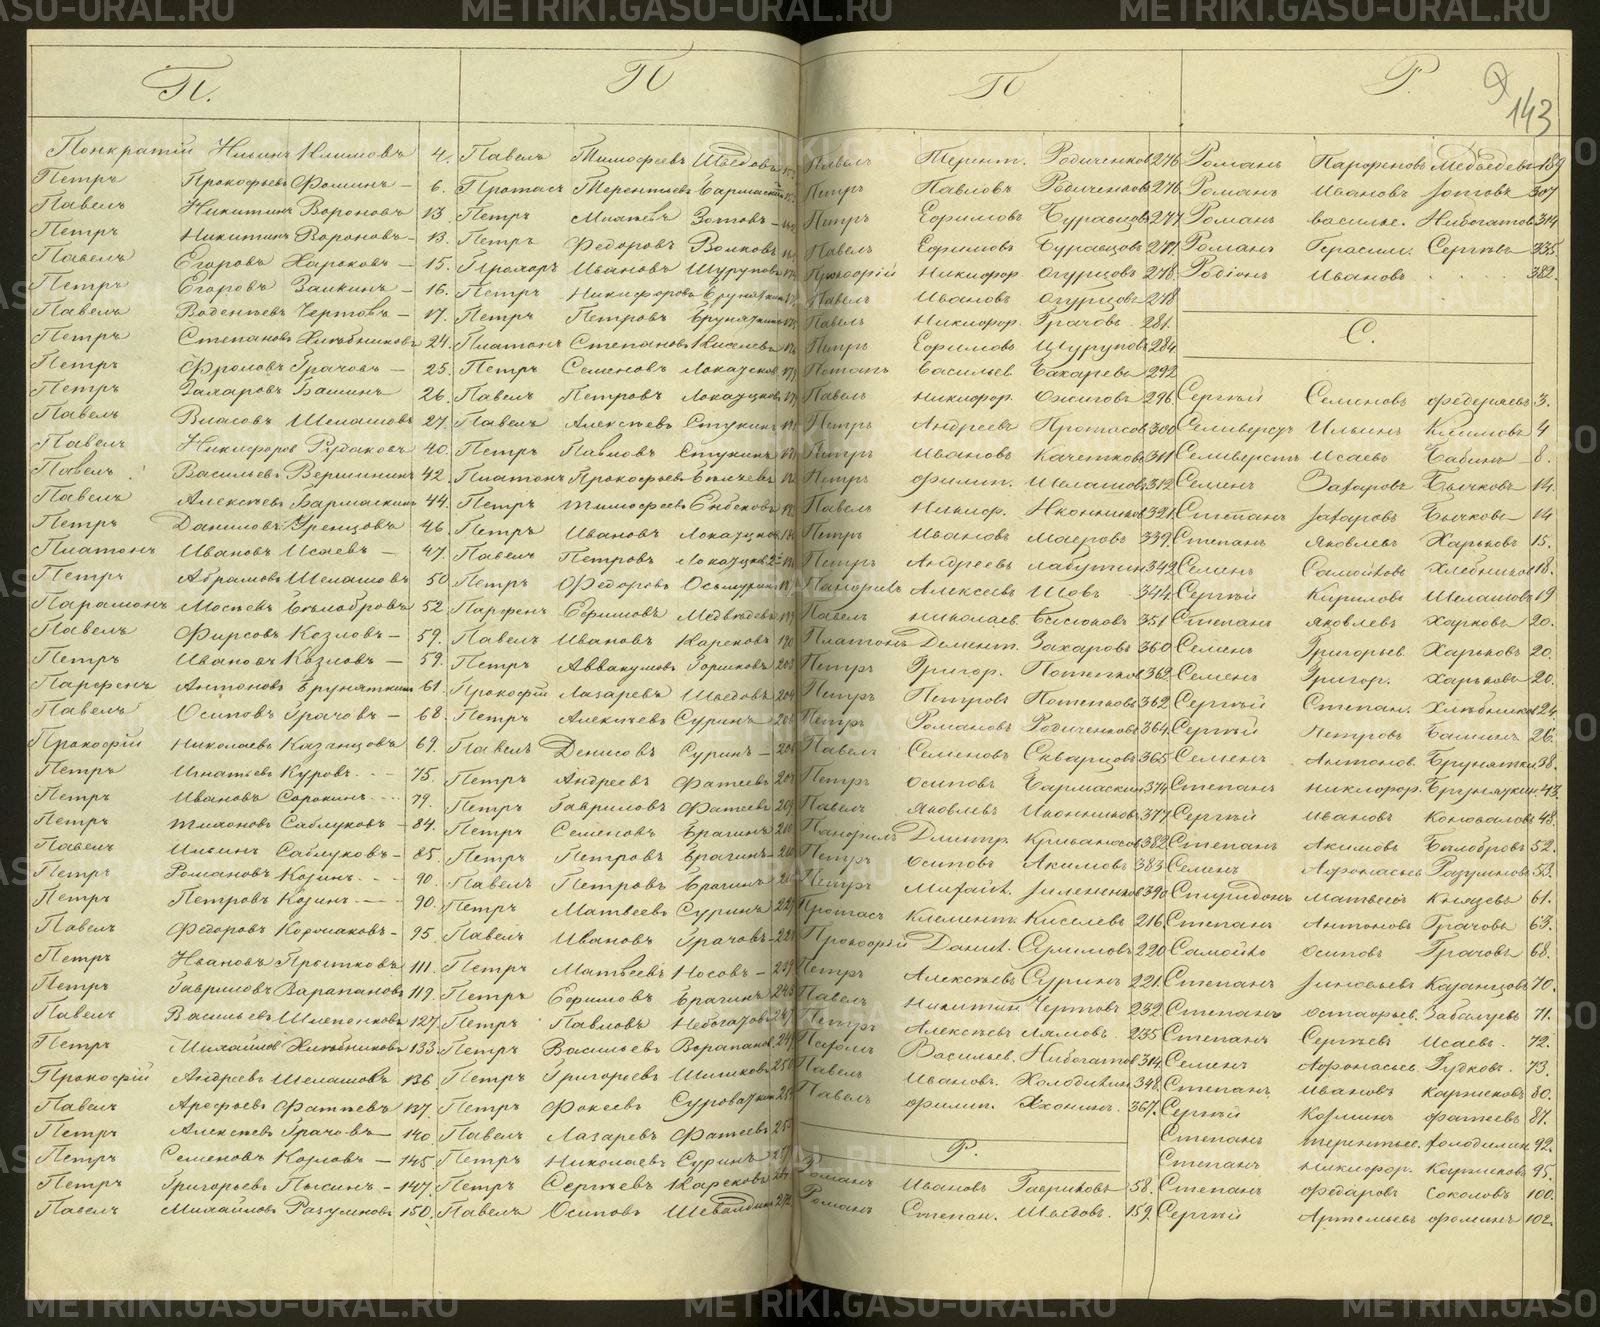 П.
Понкратій Ильинъ Климовъ 4.
Петръ Прокофьевъ Фоминъ — 6.
Павелъ Никитинъ Вороновъ 13.
Петръ Никитинъ Вороновъ — 13.
Павелъ Егоровъ Харьковъ — 15.
Петръ Егоровъ Заикинъ — 16.
Павелъ Воденѣевъ Чертовъ — 17.
Петръ Степановъ Хлѣбниковъ 24.
Петръ Фроловъ Грачовъ — 25.
Петръ Захаровъ Башинъ 26.
Павелъ Власовъ Шелашовъ 27.
Павелъ Никифоровъ Рудаковъ 40.
Павелъ Васильевъ Вершининъ 42.
Павелъ Алексѣевъ Бармаскинъ 44.
Петръ Даниловъ Уренцовъ 46.
Платонъ Ивановъ Исаевъ — 47.
Петръ Абрамовъ Шелашовъ 50.
Парамонъ Мосѣевъ Бѣлобровъ 52.
Павелъ Фирсовъ Козловъ — 59.
Петръ Ивановъ Козловъ — 59.
Парфенъ Антоновъ Бруняткинъ 61.
Павелъ Осиповъ Грачовъ — 68.
Прокофій Николаевъ Казанцовъ 69.
Петръ Игнатьевъ Куровъ 75.
Петръ Ивановъ Сорокинъ 79.
Петръ Тихоновъ Саблуковъ — 84.
Павелъ Ильинъ Саблуковъ — 85.
Петръ Романовъ Козинъ 90.
Петръ Петровъ Козинъ 90.
Павелъ Федоровъ Корчаковъ — 95.
Петръ Ивановъ Прытковъ 111.
Петръ Гавриловъ Варапановъ 119.
Павелъ Васильевъ Шлепенковъ 127.
Петръ Михайлов Хлѣбниковъ 133.
Прокофій Андреевъ Шелашовъ 136
Павелъ Арефьевъ Фатѣевъ 137.
Петръ Алексѣевъ Грачовъ — 140.
Петръ Семеновъ Козловъ — 145.
Петръ Григорьевъ Пысинъ — 147.
Павелъ Михайловъ Разумновъ 150.
П
Павелъ Тимофеевъ Шведовъ
Протасъ Терентьевъ Бармаскинъ
Петръ Зотовъ
Петръ Федоровъ Волковъ
Ивановъ Шуруповъ
Петръ Никифоровъ Бруняткинъ
Петръ Петровъ Бруняткинъ
Платонъ Степановъ Киселевъ
Петръ Семеновъ
Павелъ Петровъ
Павелъ Алексѣевъ Стукинъ
Петръ Павловъ Стукинъ
Платонъ Прокофьевъ
Петръ Тимофеевъ
Петръ Ивановъ
Павелъ Петровъ
Петръ Федоровъ
Парфенъ Ефимовъ Медвѣдевъ
Павелъ Ивановъ Карековъ 190
Петръ Аввакумовъ Горшковъ 203
Прокофій Лазаревъ Шведовъ 204
Петръ Алексѣевъ Суринъ
Павелъ Денисовъ Суринъ —
Петръ Андреевъ Фатеевъ
Петръ Гавриловъ Фатеевъ 209
Петръ Семеновъ Брагинъ 210
Петръ Петровъ Брагинъ
Павелъ Петровъ Брагинъ
Петръ Матвеевъ Суринъ
Павелъ Ивановъ Грачовъ —
Петръ Матвеевъ Носовъ — 239
Петръ Ефимовъ Брагинъ
Петръ Павловъ Небогатовъ 247
Петръ Васильевъ Варапановъ
Петръ Григорьевъ Шишковъ
Петръ Фокеевъ Суровяткинъ
Павелъ Лазаревъ Фатеевъ
Петръ Николаевъ Суринъ
Петръ Сергѣевъ Карековъ
Павелъ Осиповъ Шевалдинъ
П
Павелъ Терент. Родиченковъ 276
Петръ Павловъ Родиченковъ 276.
Петръ Ефимовъ Буравцовъ 277
Павелъ Ефимовъ Буравцовъ 277.
Прокофій Никифор. Огурцовъ 278.
Павелъ Ивановъ Огурцовъ 278
Павелъ Никифор. Грачовъ. 281.
Петръ Ефимовъ Шуруповъ 284.
Потапъ Васильев. Бахаревъ 292
Павелъ Никифор. Ожиговъ 296.
Петръ Андреевъ Протасов. 300
Петръ Ивановъ Качетковъ 311
Петръ Филип. Шелашовъ 312.
Павелъ Никифор. Иконниковъ 321.
Петръ Ивановъ 339.
Петръ Андреевъ Лабутинъ 342
Панфилъ Алексеевъ Шовъ 344.
Павелъ Николаев. 351
Платонъ Демент. Захаровъ 360
Петръ Григор. Потепковъ 362.
Петръ Петровъ Потепковъ 362.
Петръ Романовъ Родиченковъ 364.
Павелъ Семеновъ Скварцовъ 365
Петръ Осиповъ Бармаскинъ 374
Павелъ Яковлевъ Иконниковъ 377.
Панфилъ Дмитр. Кривоносовъ 382
Петръ Осиповъ Акимовъ 383.
Петръ Михайл. 390
Протасъ Клемент. Киселевъ 216.
Прокофій Данил. 220.
Петръ Алексѣевъ Суринъ 221.
Павелъ Никитин. Чертовъ 232.
Петръ Алексѣевъ Лямовъ. 235
Васильев. Нибогатов. 314.
Павелъ Ивановъ. Холодилин. 348.
Павелъ Филип. 367.
Р.
Романъ Ивановъ Гавриковъ 58.
Романъ Степан. Шведовъ. 159.
Р.
143
Романъ Парфеновъ Медведевъ 189
Романъ Ивановъ Зотовъ 307
Романъ Василье. Нибогатов 314
Романъ Герасим. Сергѣевъ 335.
Родіонъ Ивановъ 382.
С.
Сергѣй Семеновъ Федеряевъ 3.
Селиверстъ Ильинъ Климовъ 4
Селиверстъ Исаевъ Бабинъ — 8.
Семенъ Захаровъ Бычковъ 14.
Степанъ Захаровъ Бычковъ 14
Степанъ Яковлевъ Харьковъ 15.
Семенъ Самойловъ Хлебников 18.
Сергѣй Кириловъ Шелашовъ 19
Степанъ Яковлевъ Харковъ 20.
Семенъ Григорьев. Харьковъ 20.
Семенъ Григор. Харьковъ 20.
Сергѣй Степан. Хлѣбников 24.
Сергѣй Петровъ Башинъ 26.
Семенъ Антонов. Бруняткин 38.
Степанъ Никифор. Бруняткин. 43.
Сергѣй Ивановъ Коновалов 48.
Степанъ Акимовъ Бѣлобровъ 52.
Семенъ Афонасьев Разумновъ 53.
Спиридонъ Матвеевъ Князевъ 61.
Степанъ Антоновъ Грачовъ 63.
Самойло Осиповъ Грачовъ 68.
Степанъ Зиновьевъ Казанцовъ 70.
Степанъ Остафьев. Забалуевъ 71.
Степанъ Сергѣевъ Исаевъ. 72.
Семенъ Афонасьев. Гудковъ. 73.
Степанъ Ивановъ 80.
Сергѣй Козминъ Фатеевъ 87.
Степанъ Терентьев. Холодилин 92.
Степанъ Никифор. 95.
Степанъ Федаровъ Соколовъ 100.
Сергѣй Артемьевъ Фоминъ 102.
METRIKI.GASO-URAL.RU